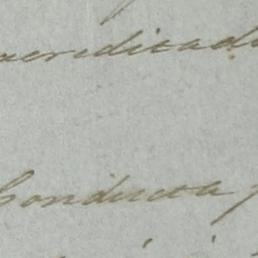 acreditado
Conducta